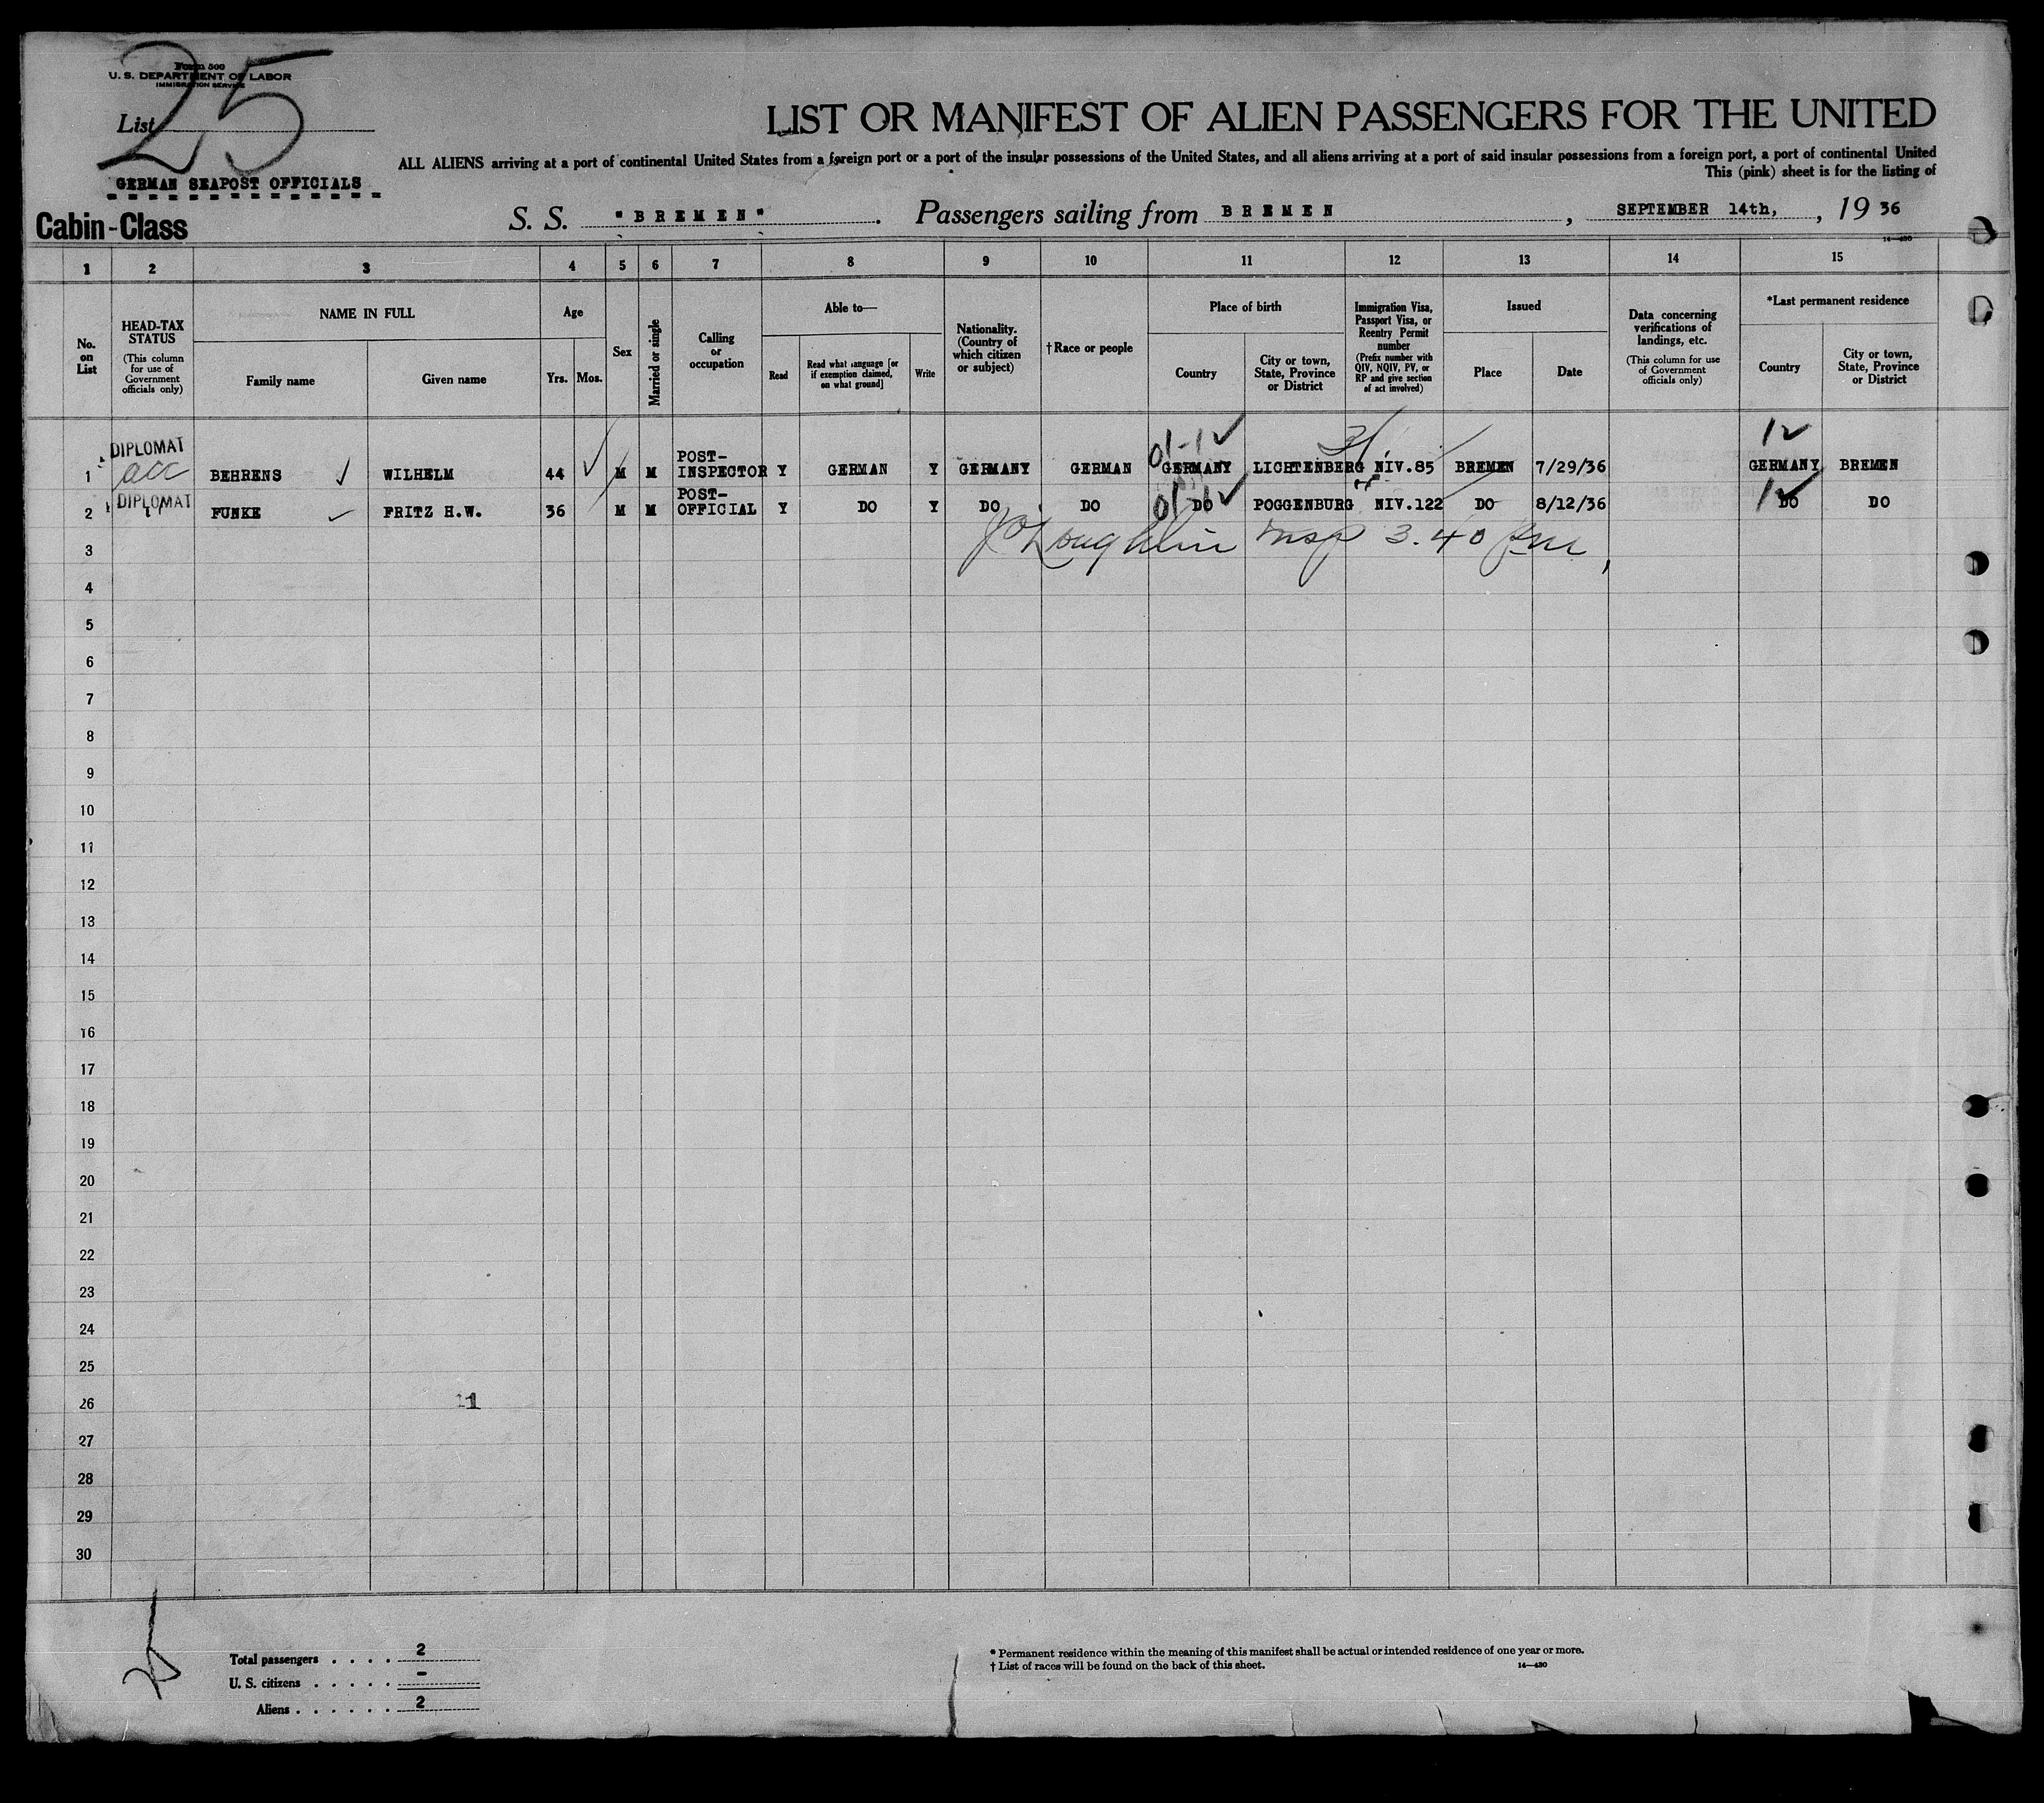 Form 500
U. S. DEPARTMENT OF LABOR
IMMIGRATION SERVICE
List 25
GERMAN SEAPOST OFFICIALS
LIST OR MANIFEST OF ALIEN PASSENGERS FOR THE UNITED
ALL ALIENS arriving at a port of continental United States from a foreign port or a port of the insular possessions of the United States, and all aliens arriving at a port of said insular possessions from a foreign port, a port of continental United
This (pink) sheet is for the listing of
Cabin-Class
S. S. "BREMEN". Passengers sailing from BREMEN, SEPTEMBER 14th, , 19 36
14—430
1 2 3 4 5 6 7 8 9 10 11 12 13 14 15
No. on List
HEAD-TAX STATUS
(This column for use of Government officials only)
NAME IN FULL
Family name
Given name
Age
Yrs. Mos.
Sex
Married or single
Calling or occupation
Able to—
Read
Read what language [or if exemption claimed, on what ground]
Write
Nationality. (Country of which citizen or subject)
† Race or people
Place of birth
Country
City or town, State, Province or District
Immigration Visa, Passport Visa, or Reentry Permit number
(Prefix number with QIV, NQIV, PV, or RP and give section of act involved)
Issued
Place
Date
Data concerning verifications of landings, etc.
(This column for use of Government officials only)
*Last permanent residence
Country
City or town, State, Province or District
1 DIPLOMAT acc BEHRENS WILHELM 44 M M POST-INSPECTOR Y GERMAN Y GERMANY GERMAN 01-1 GERMANY LICHTENBERG NIV.85 BREMEN 7/29/36 1 GERMANY BREMEN
2 DIPLOMAT FUNKE FRITZ H.W. 36 M M POST-OFFICIAL Y DO Y DO DO 01-1 DO POGGENBURG NIV.122 DO 8/12/36 1 DO DO
3 J O'Loughlin Insp 3.40 pm
4
5
6
7
8
9
10
11
12
13
14
15
16
17
18
19
20
21
22
23
24
25
26
27
28
29
30
Total passengers . . . . 2
U. S. citizens . . . . . -
Aliens . . . . . . 2
* Permanent residence within the meaning of this manifest shall be actual or intended residence of one year or more.
† List of races will be found on the back of this sheet.
14—430